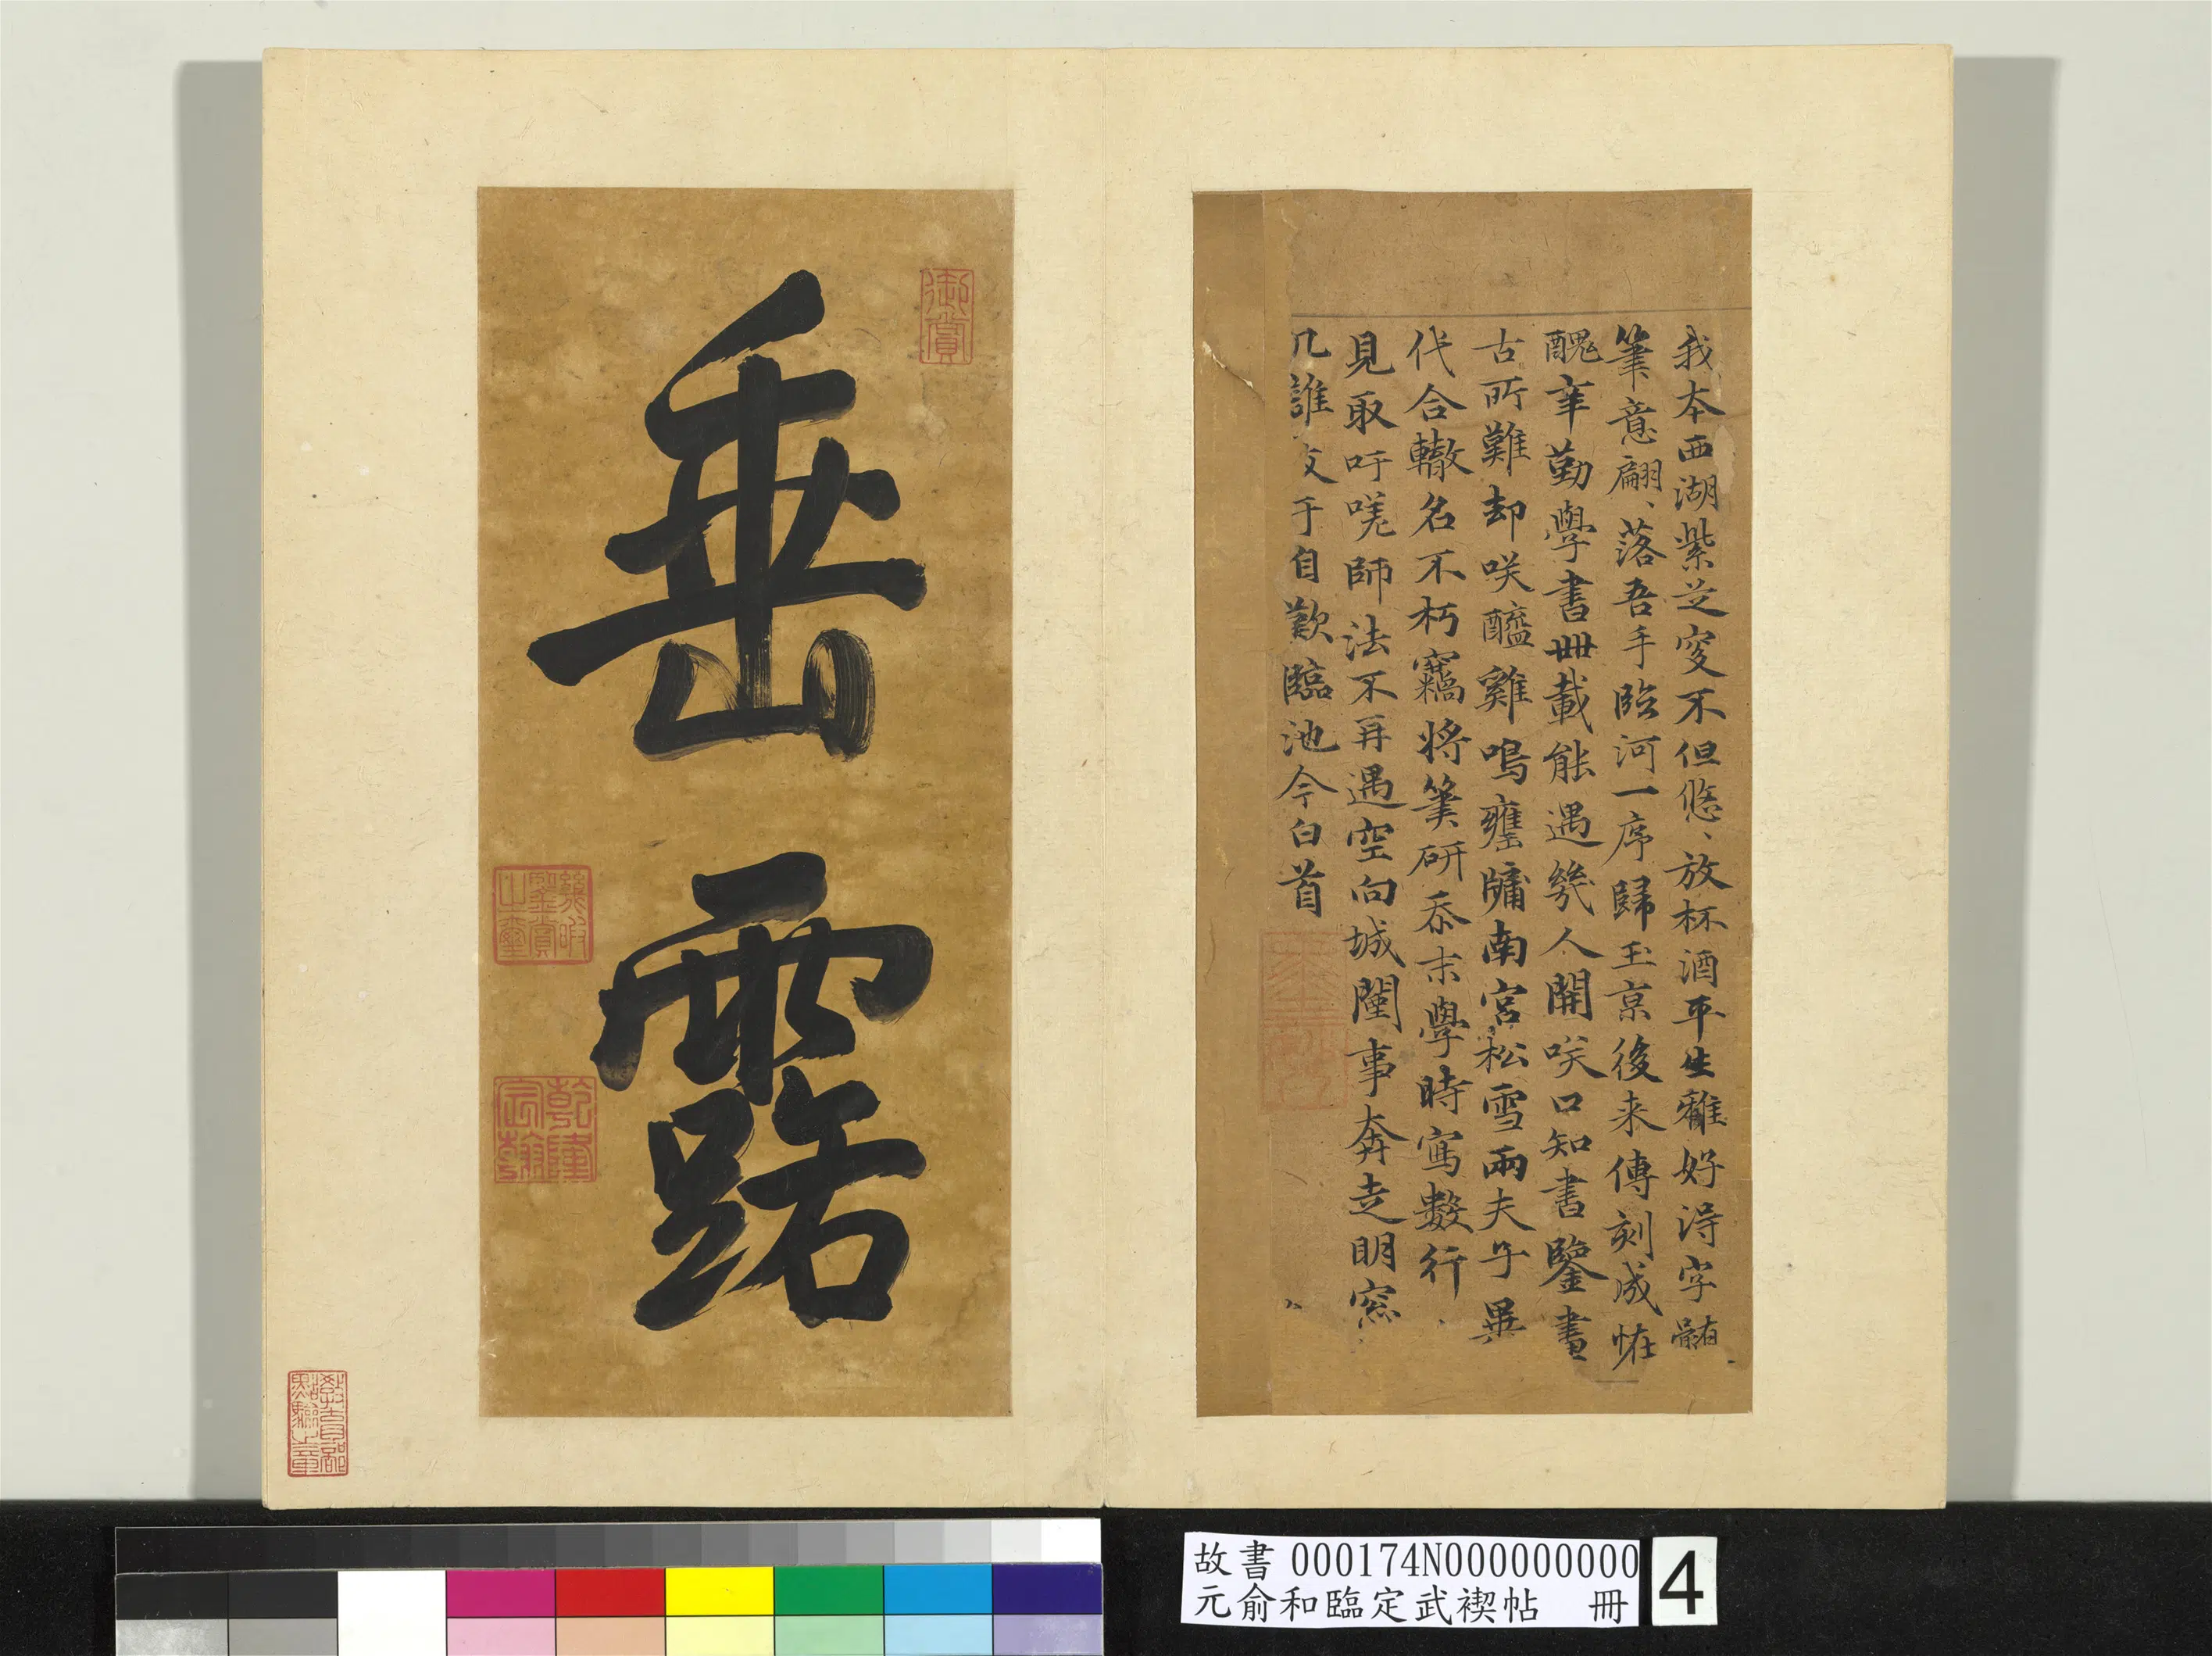 我本西湖紫芝叟不但悠、放杯酒平生雅好淂字髓
筆意翩、落吾手臨河一序歸玉京後来傳刻成怪
醜辛勤學書卌載能遇幾人開咲口知書鑒書
古所難却咲醯雞鳴甕牖南宮松雪兩夫子異
代合轍名不朽竊將筆研忝末學時寫數行
見取吁嗟師法不再遇空向城闉事奔走明窓
几誰 于自歎臨池今白首
御賞
垂
露
乾隆宸翰
教育部點驗之章
故書 000174N000000000
元俞和臨定武禊帖 冊
4